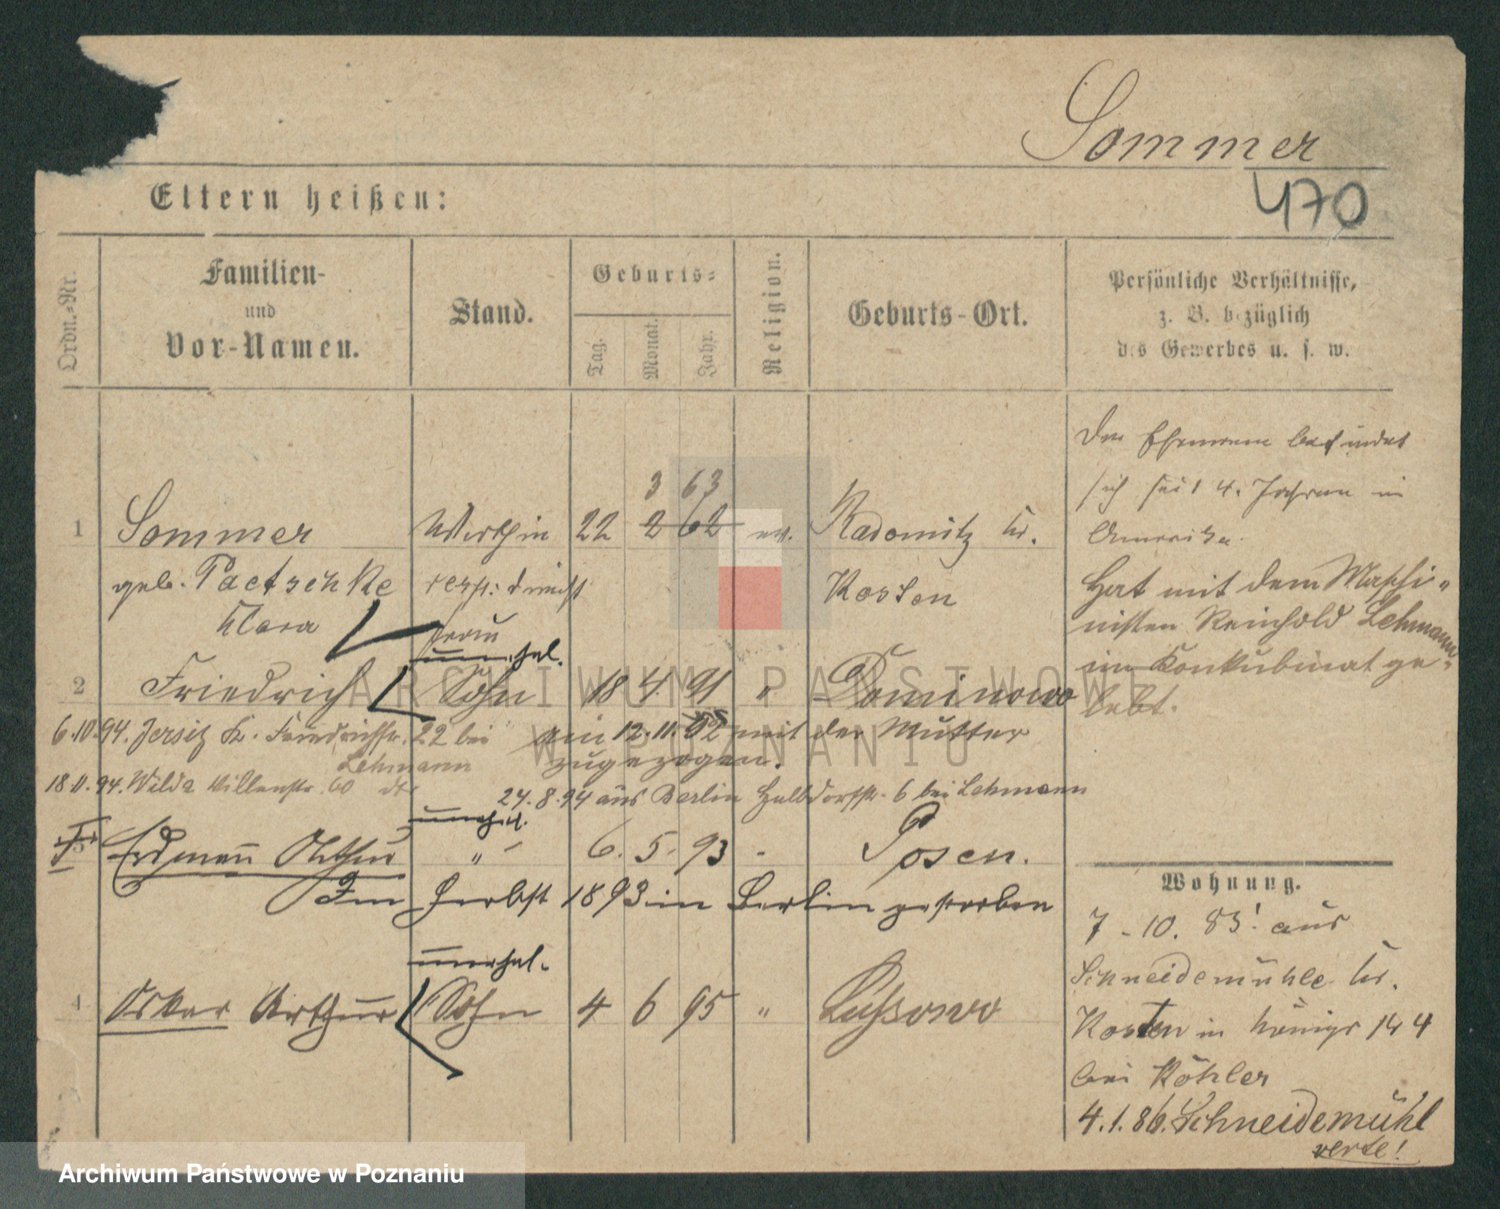 Sommer
470
Eltern heißen:
Ordn.-Nr.
Familien-
und
Vor-Namen.
Stand.
Geburts-
Tag.
Monat.
Jahr.
Religion.
Geburts-Ort.
Persönliche Verhältnisse,
z. B. bezüglich
des Gewerbes u. s. w.
Der Ehemann befindet
sich seit 4. Jahren in
Amerika
Hat mit dem Maschi-
nisten Reinhold Lehmann
im Konkubinat ge-
lebt.
3 63
1 Sommer Wirthin 22 2 62 ev. Radomitz Kr.
geb. Paetschke Kosten
Klara
Frau
unehel.
2 Friedrich Sohn 18 4. 91 " Dominowo
6.10.94. Jersitz Friedrichstr. 22 bei
Lehmann
am 12.11. 92 mit der Mutter
zugezogen.
18.11.94. Wilda Villenstr. 60
24.8.94 aus Berlin 6 bei Lehmann
unehel.
3 Erdmann Arthur " 6. 5. 93 - Posen.
Im Herbst 1893 in Berlin gestorben
unehel.
4 Oskar Arthur Sohn 4 6 95 " Lussowo
Wohnung.
7.10. 83! aus
Schneidemühle Kr.
Kosten in Königs 14 4
bei Köhler
4.1.86. Schneidemühl
verte!
ARCHIWUM PAŃSTWOWE
W POZNANIU
Archiwum Państwowe w Poznaniu